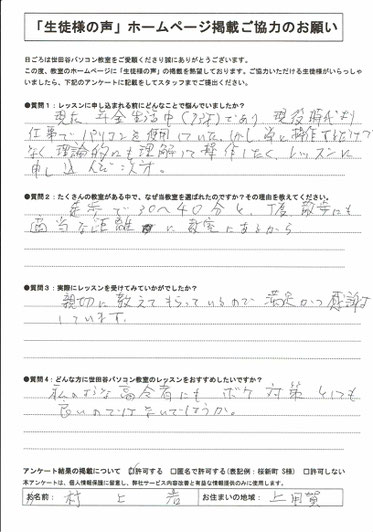 「生徒様の声」ホームページ掲載ご協力のお願い
日ごろは世田谷パソコン教室をご愛顧くださり誠にありがとうございます。
この度、教室のホームページに「生徒様の声」の掲載を熱望しております。ご協力いただける生徒様がいらっしゃい
ましたら、下記のアンケートに記載をしてスタッフまでご提出ください。
●質問1：レッスンに申し込まれる前にどんなことで悩んでいましたか？
現在、年金生活中 であり 現役時代より
仕事でパソコンを使用していた。しかし 操作するだけで
なく、理論的にも理解して操作したく、レッスンに
申し込んだ次第。
●質問2：たくさんの教室がある中で、なぜ当教室を選ばれたのですか？その理由を教えてください。
徒歩で30〜40分と、丁度散歩にも
適当な距離 に教室にあるから
●質問3：実際にレッスンを受けてみていかがでしたか？
親切に教えてもらっているので満足かつ感謝
しています。
●質問4：どんな方に世田谷パソコン教室のレッスンをおすすめしたいですか？
私のような高令者にもボケ対策としても
良いのではないでしょうか。
アンケート結果の掲載について ☑許可する □匿名で許可する(表記例：桜新町 S様) □許可しない
本アンケートは、個人情報保護に留意し、弊社サービス内容改善と有益な情報提供のみに使用します。
お名前： 村上 お住まいの地域： 上用賀